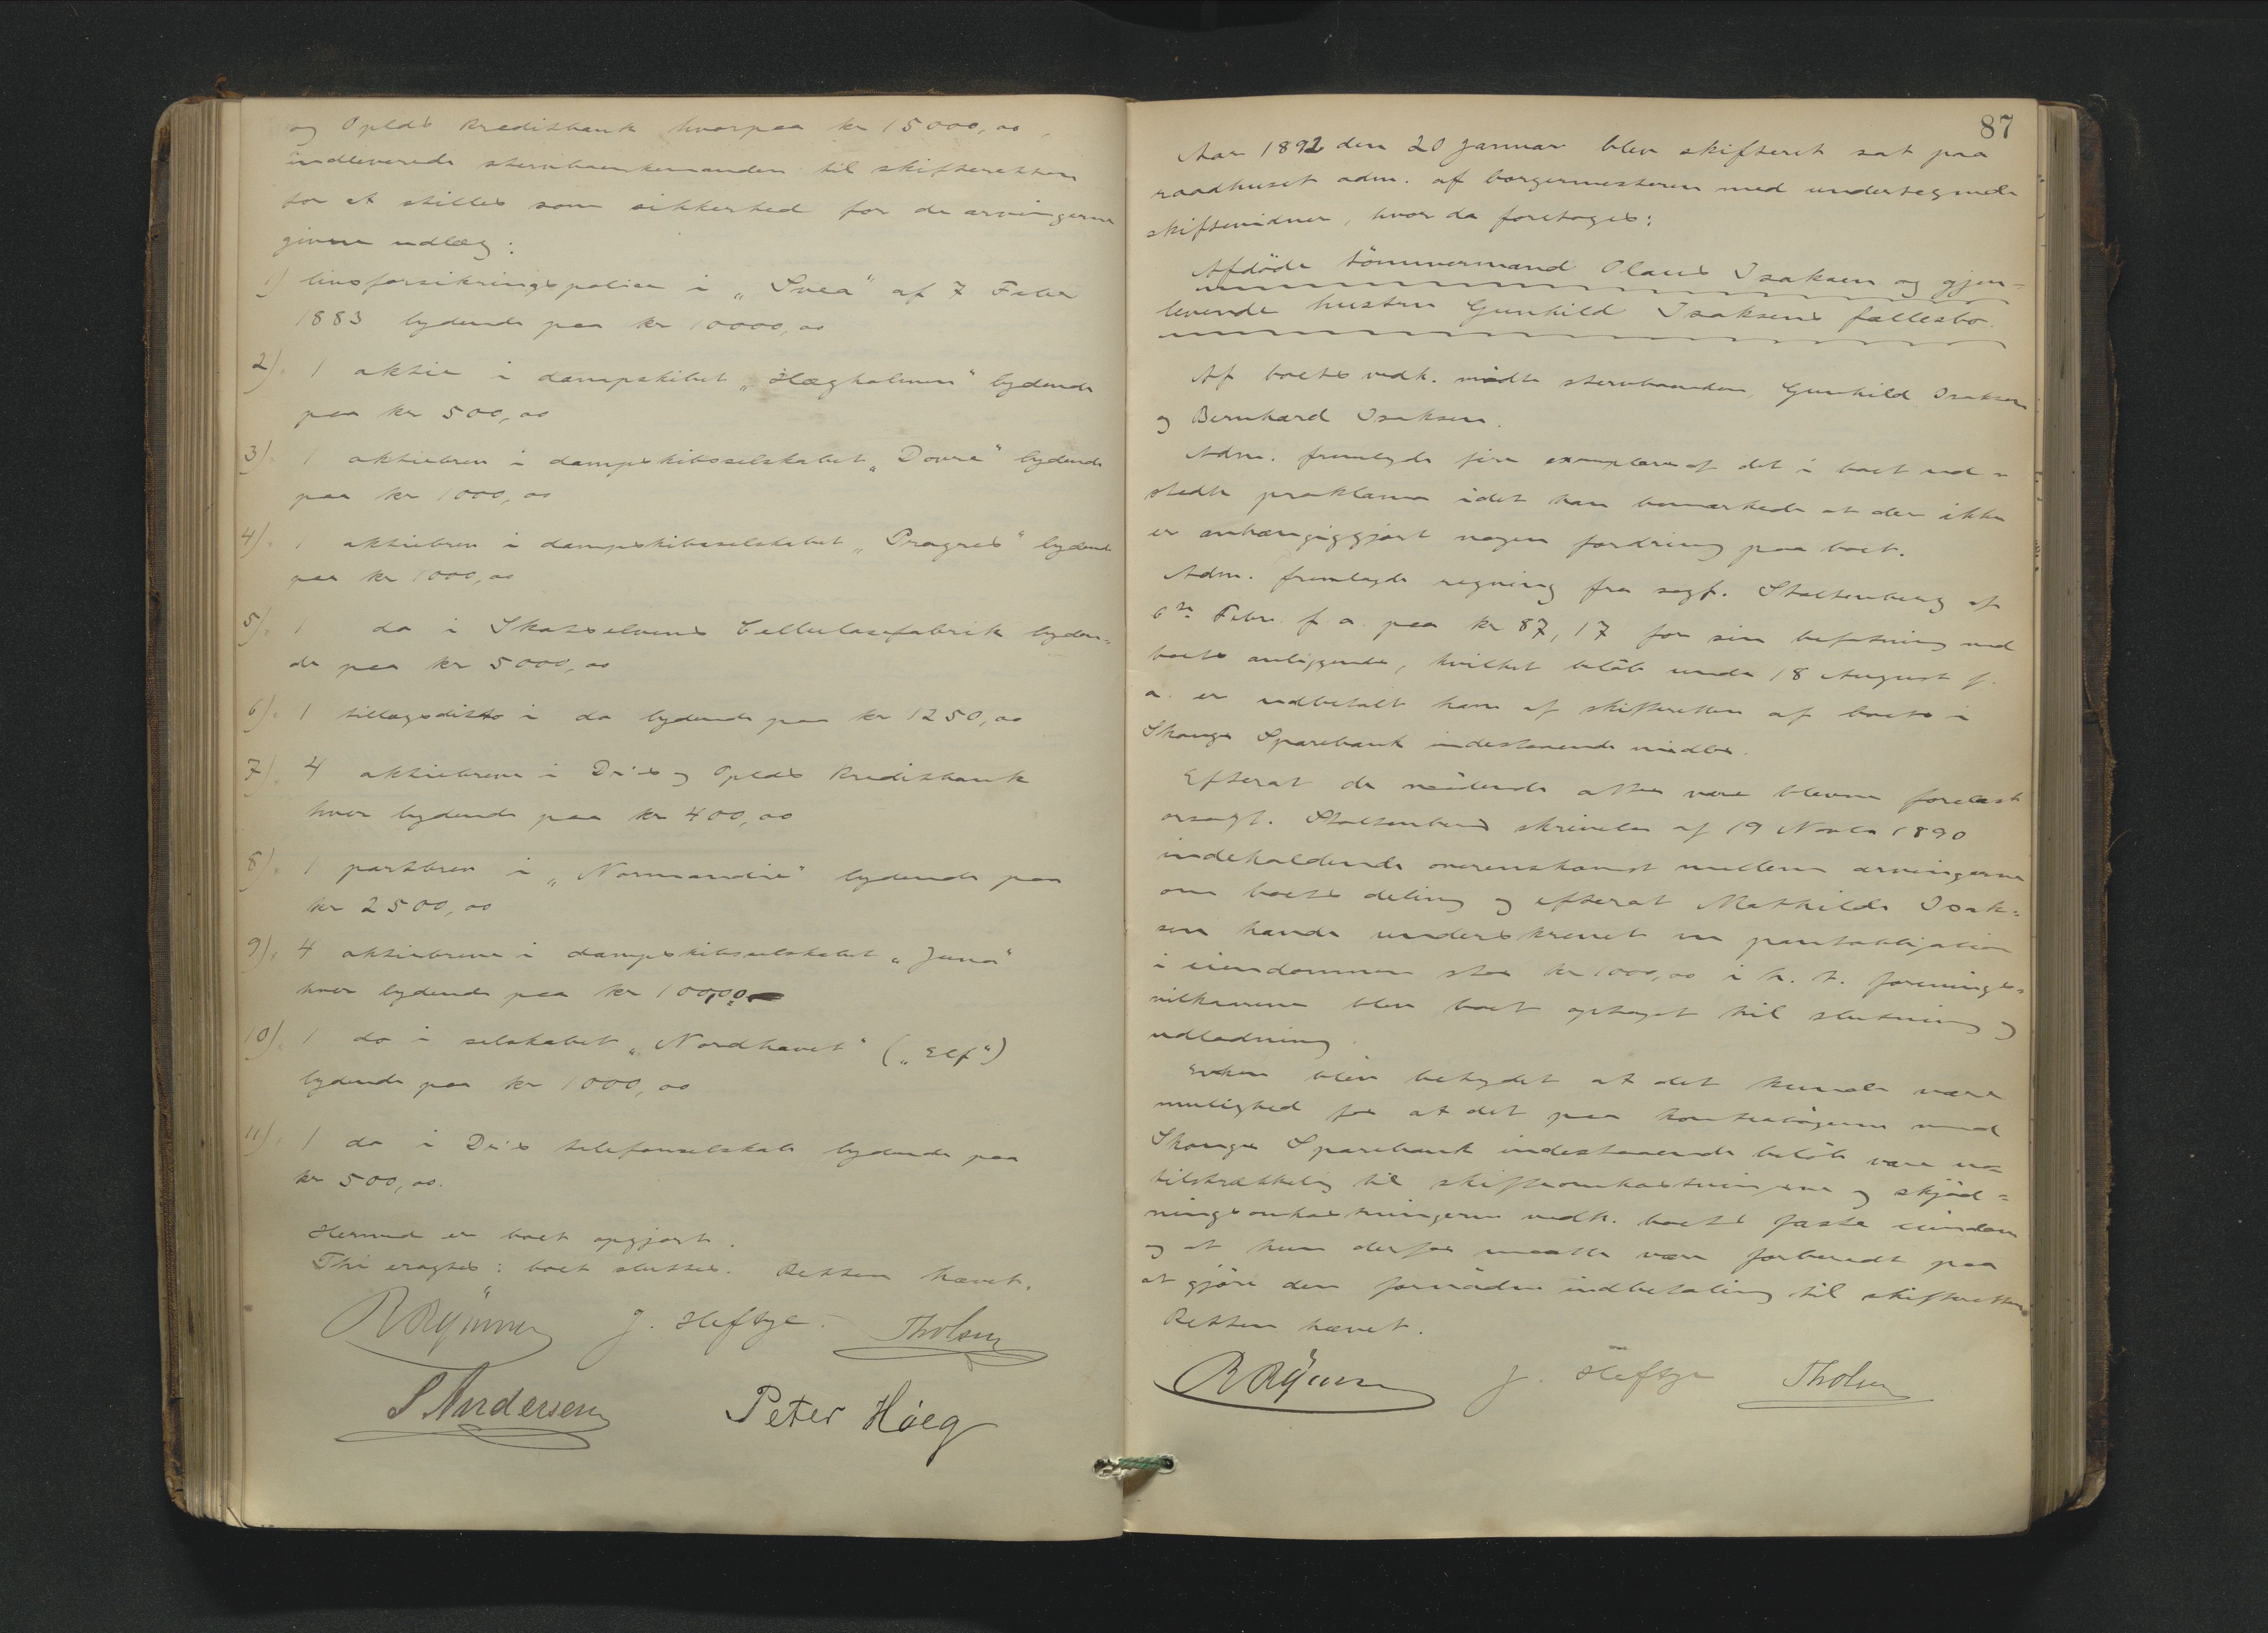 og Oplds Kreditbank hvorpaa kr 15000,00,
indleverede stervboenkemanden til skifteretten
for at stilles som sikkerhed for de arvingerne
givne udlæg:
1) livsforsikringspolice i „Svea“ af 7 Febr
1883 lydende paa kr 10000,00
2). 1 aktie i dampskibet „Hægholmen“ lydende
paa kr 500,00
3). 1 aktiebrev i dampskibsselskabet „Dovre“ lydende
paa kr 1000,00
4). 1 aktiebrev i dampskibsselskabet „Progres“ lydende
paa kr 1000,00
5). 1 do i Skotselvens Cellulosefabrik lyden-
de paa kr 5000,00
6). 1 tillægsditto i do lydende paa kr 1250,00
7). 4 aktiebreve i D:s og Oplds Kreditbank
hver lydende paa kr 400,00
8). 1 partbrev i „Normandie“ lydende paa
kr 2500,00
9). 4 aktiebreve i dampskibsselskabet „Juno“
hver lydende paa kr 100,00
10). 1 do i selskabet „Nordhavet“ („Elf“)
lydende paa kr 1000,00
11). 1 do i D:s telefonselskab lydende paa
kr 500,00.
Hermed er boet opgjort.
Thi eragtes: boet sluttes. Retten hævet.
J. Heftye Tholsen
S Andersen Peter Höeg
87
Aar 1892 den 20 Januar blev skifteret sat paa
raadhuset adm. af borgermesteren med undertegnede
skiftevidner, hvor da foretoges:
Afdöde tömmermand Olaus Isaksen og gjen-
levende hustru Gunhild Isaksens fællesbo.
Af boets vedk. mödte stervboenken, Gunhild Isaksen
og Bernhard Isaksen.
Adm. fremlagde fire exemplarer af det i boet ud-
stedte proklama idet han bemærkede at der ikke
er anhængiggjort nogen fordring paa boet.
Adm. fremlagde regning fra sagf. Stoltenberg af
6te Febr. f. a. paa kr 87,17 for sin befatning med
boets anliggende, hvilket belöb under 18 August f.
a. er udbetalt ham af skifteretten af boets i
Skoger Sparebank indestaaende midler.
Efterat de mödende atter vare blevne forelæst
orsagf. Stoltenbergs skrivelse af 19 Novbr 1890
indeholdende overenskomst mellem arvingerne
om boets deling og efterat Mathilde Isak-
sen havde underskrevet en pantobligation
i eiendommen stor kr 1000,00 i h. t. forenings-
vilkaarene blev boet optaget til slutning og
udlodning.
Enken blev betydet at det kunde være
mulighed for at det paa kontrabögerne med
Skoger Sparebank indestaaende belöb vare u-
tilstrækkelig til skifteomkostningerne og skjöd-
ningsomkostningerne vedk. boets faste eiendom
og at hun derfor maatte være forberedt paa
at gjöre den fornödne indbetaling til skifteretten.
Retten hævet.
J. Heftye Tholsen